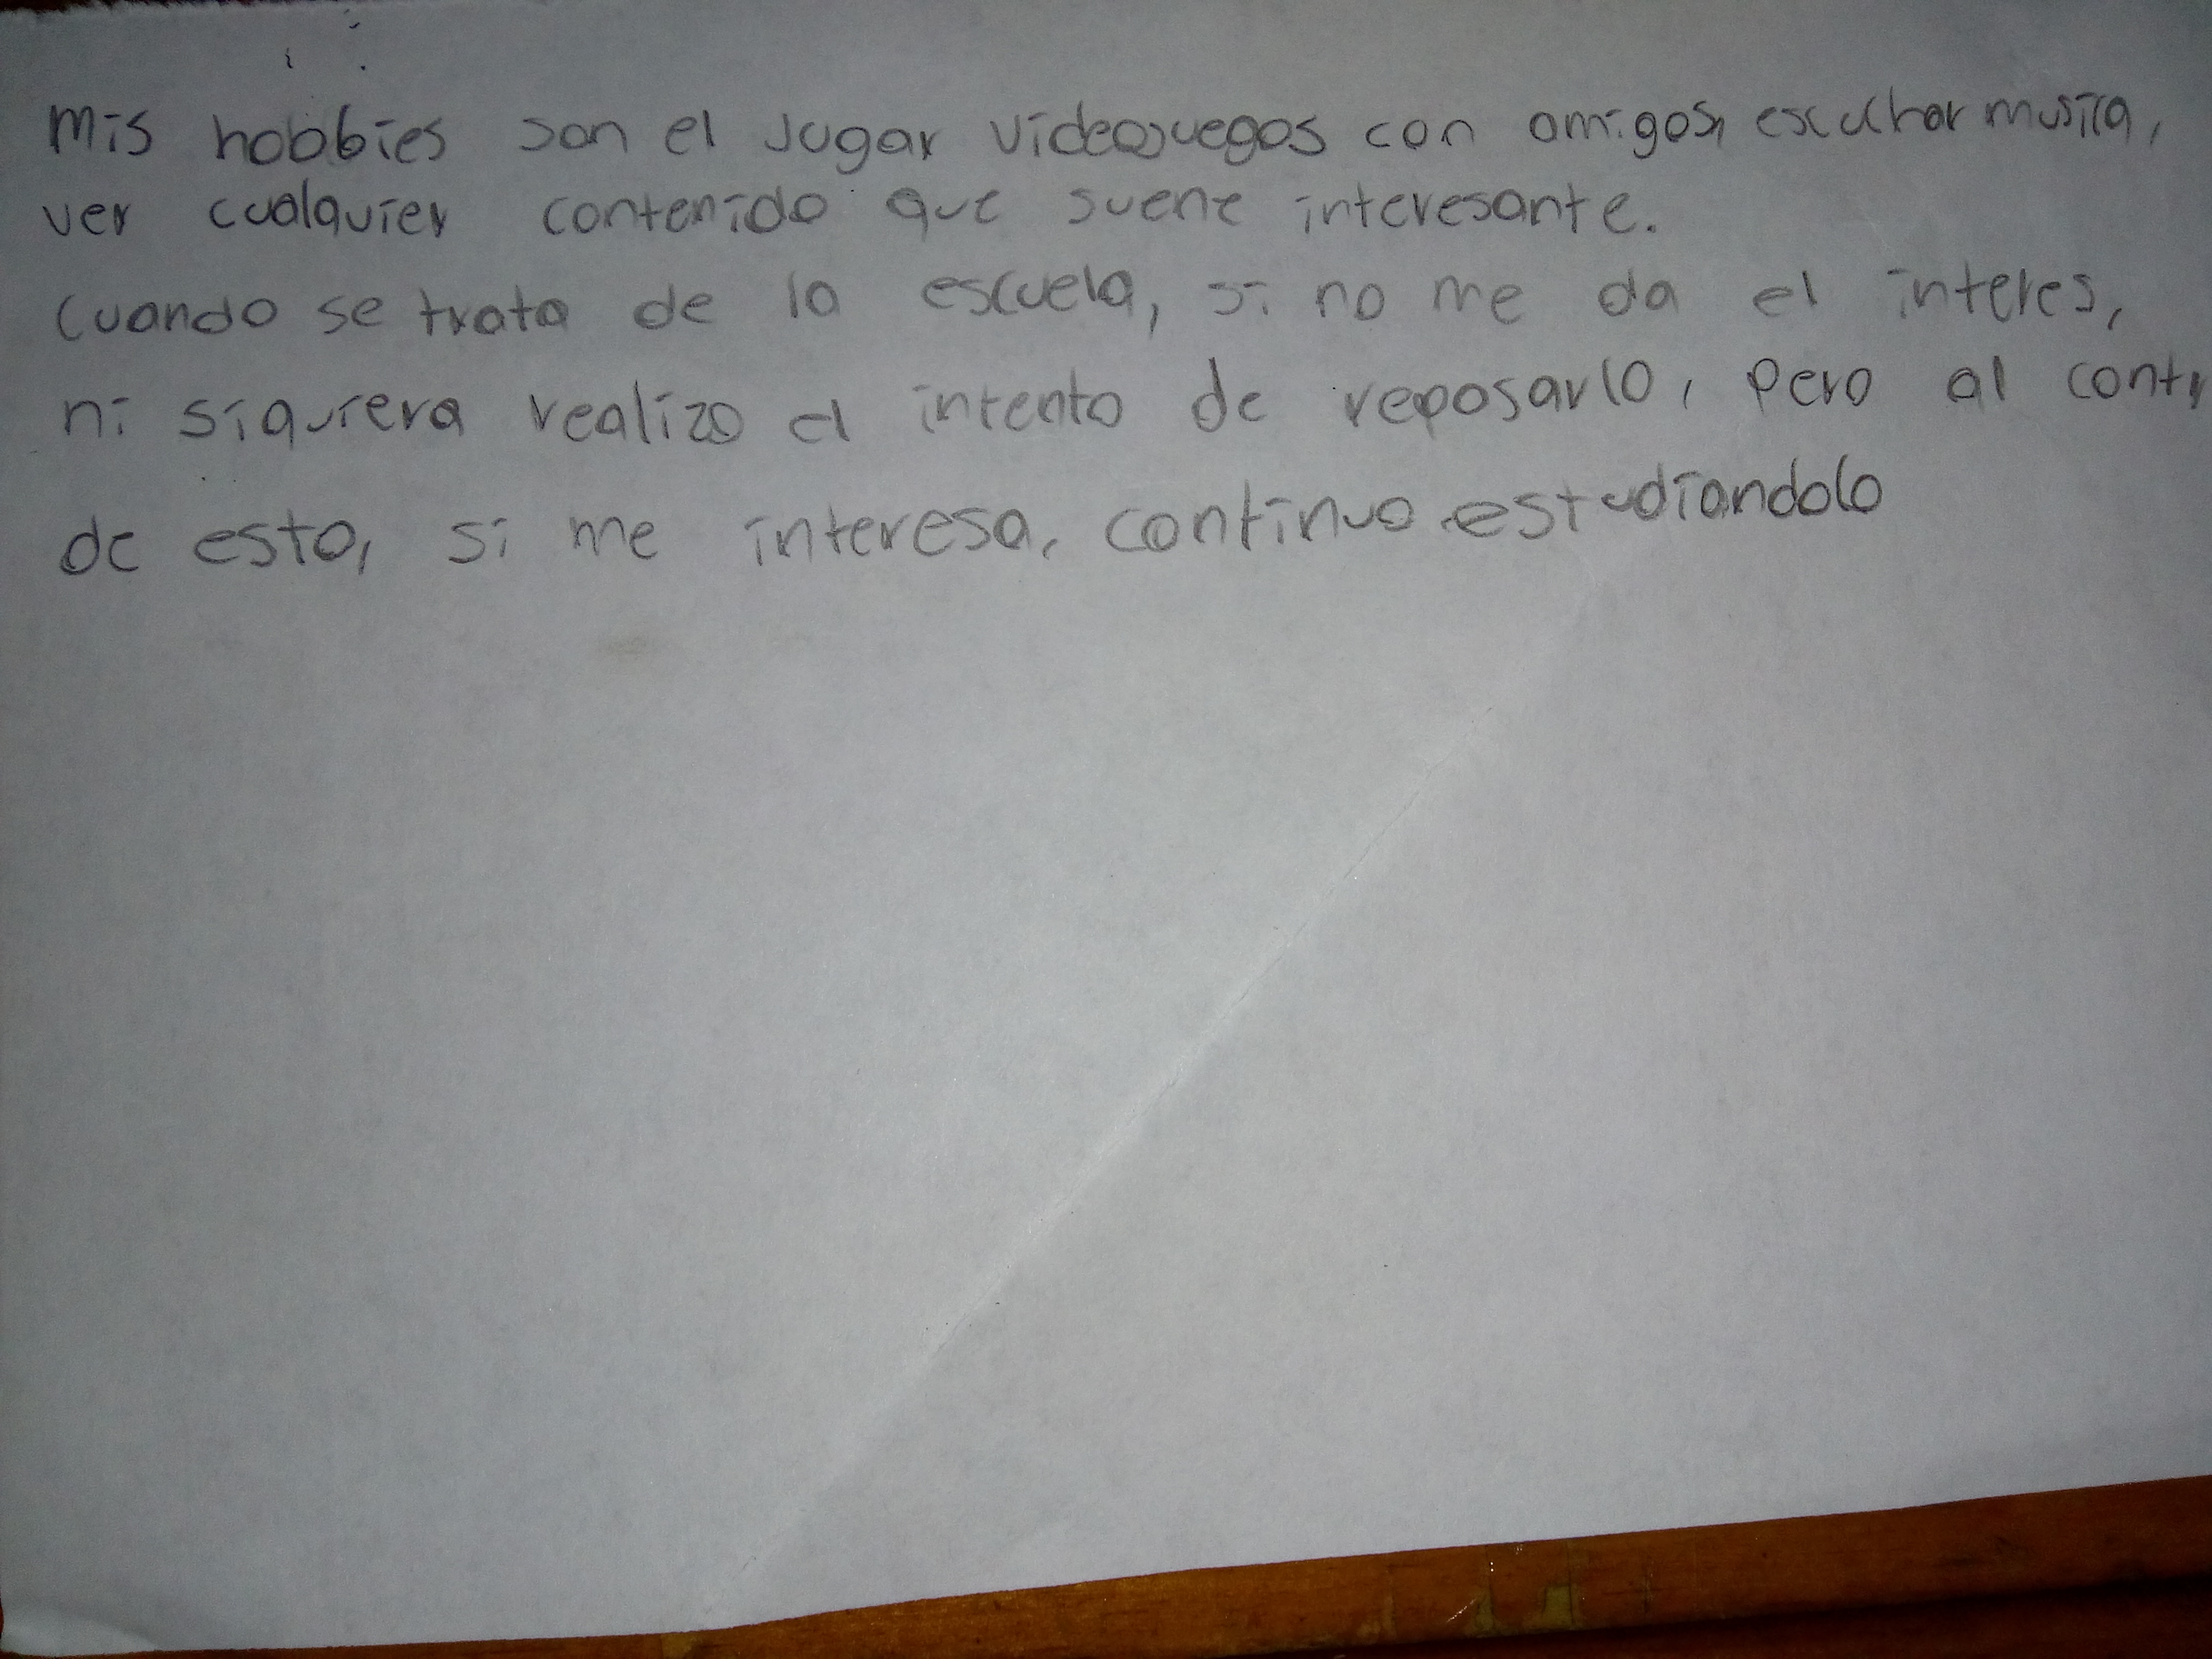 Mis hobbies son el Jugar videojuegos con amigos, escuchar musica,
ver cualquier contenido que suene interesante.
Cuando se trata de la escuela, si no me da el interes,
ni siquiera realizo el intento de reposarlo, pero al
de esto, si me interesa, continuo estudiandolo